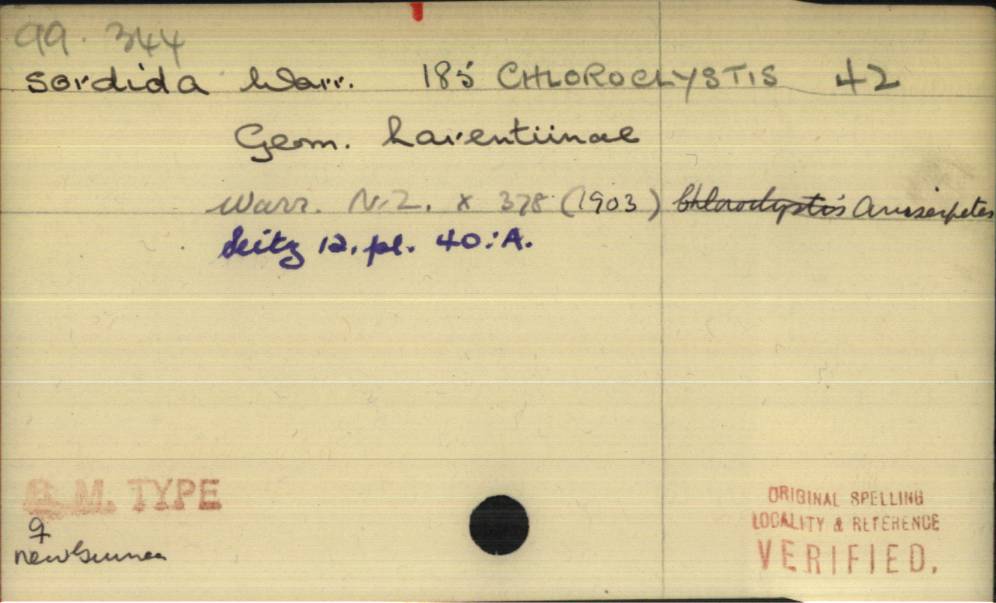 99. 344
sordida Warr. 185 CHLOROCLYSTIS 42
Geom. Larentiinae
Warr. N.Z. X 378 (1903) Chloroclystis
Seitz 12. pl. 40: A.
B. M. TYPE
♀
New Guinea
ORIGINAL SPELLING
LOCALITY & REFERENCE
VERIFIED.